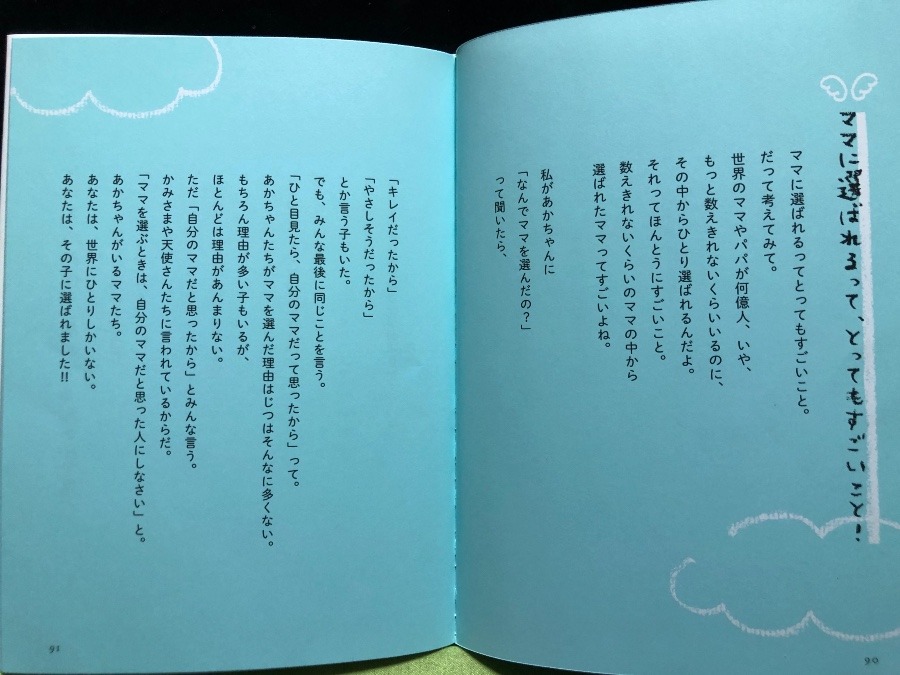 ママに選ばれるって、とってもすごいこと!
ママに選ばれるってとってもすごいこと。
だって考えてみて。
世界のママやパパが何億人、いや、
もっと数えきれないくらいいるのに、
その中からひとり選ばれるんだよ。
それってほんとうにすごいこと。
数えきれないくらいのママの中から
選ばれたママってすごいよね。
私があかちゃんに
「なんでママを選んだの?」
って聞いたら、
90
「キレイだったから」
「やさしそうだったから」
とか言う子もいた。
でも、みんな最後に同じことを言う。
「ひと目見たら、自分のママだって思ったから」って。
あかちゃんたちがママを選んだ理由はじつはそんなに多くない。
もちろん理由が多い子もいるが、
ほとんどは理由があんまりない。
ただ「自分のママだと思ったから」とみんな言う。
かみさまや天使さんたちに言われているからだ。
「ママを選ぶときは、自分のママだと思った人にしなさい」と。
あかちゃんがいるママたち。
あなたは、世界にひとりしかいない。
あなたは、その子に選ばれました!!
91